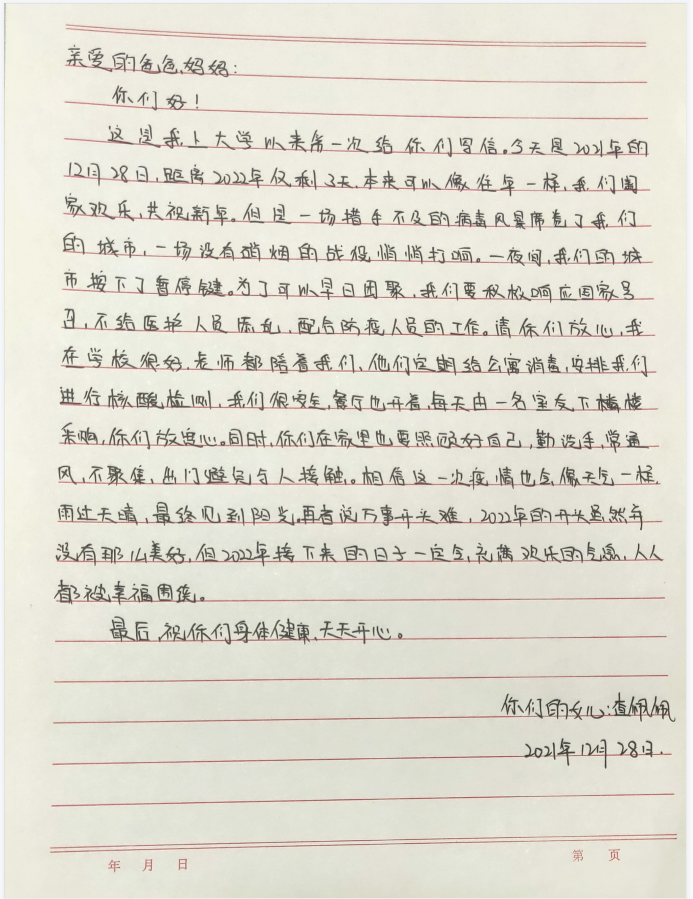 亲爱的爸爸、妈妈:
你们好!
这是我上大学以来第一次给你们写信。今天是2021年的
12月28日,距离2022年仅剩3天,本来可以像往年一样,我们阖
家欢乐,共祝新年。但是一场措手不及的病毒风暴席卷了我们
的城市,一场没有硝烟的战役悄悄打响。一夜间,我们的城
市按下了暂停键。为了可以早日团聚,我们要积极响应国家号
召,不给医护人员添乱,配合防疫人员的工作。请你们放心,我
在学校很好,老师都陪着我们、他们定期给公寓消毒,安排我们
进行核酸检测,我们很安全,餐厅也开着,每天由一名室友下楼
采购,你们放宽心。同时,你们在家里也要照顾好自己,勤洗手,常通
风,不聚集,出门避免与人接触。相信这一次疫情也会像天气一样,
雨过天晴,最终见到阳光。再者说万事开头难,2022年的开头虽然并
没有那么美好,但2022年接下来的日子一定会充满欢乐的气息,人人
都被幸福围绕。
最后,祝你们身体健康,天天开心。
你们的女儿:查佩佩
2021年12月28日.
年 月 日
第 页